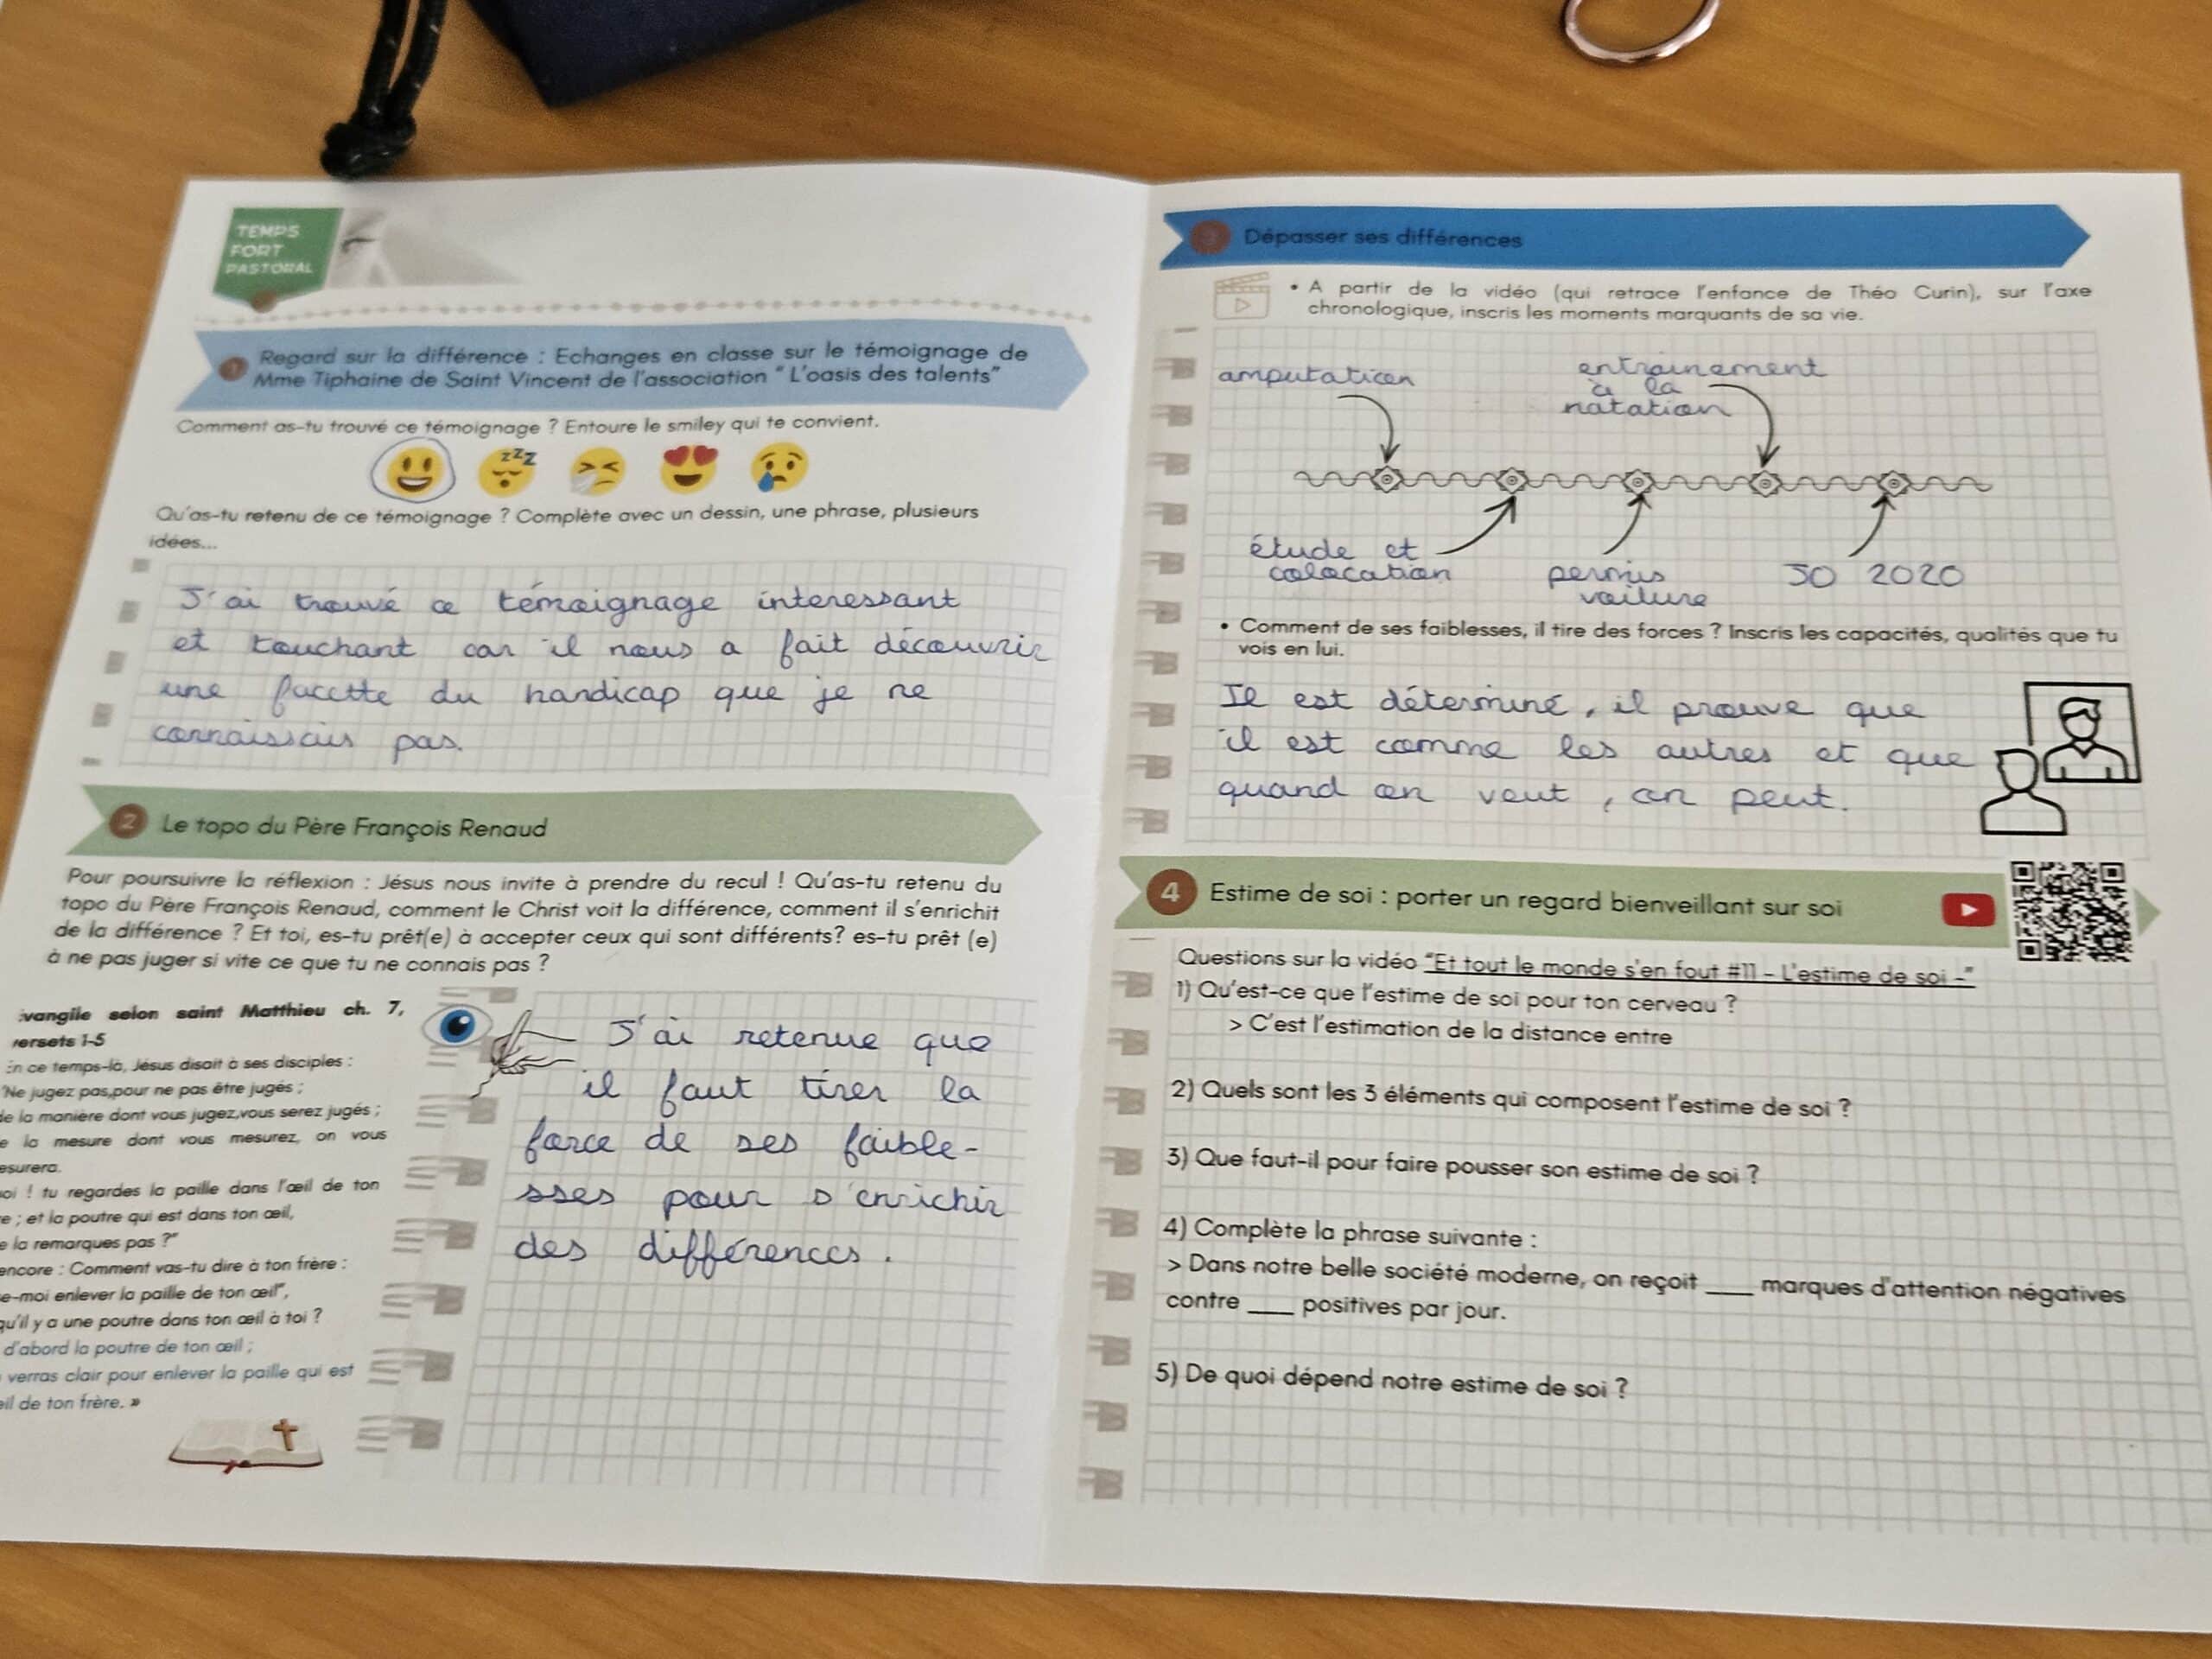 TEMPS
FORT
PASTORAL
1 Regard sur la différence : Echanges en classe sur le témoignage de
Mme Tiphaine de Saint Vincent de l'association " L'oasis des talents"
Comment as-tu trouvé ce témoignage ? Entoure le smiley qui te convient.
zzz
Qu'as-tu retenu de ce témoignage ? Complète avec un dessin, une phrase, plusieurs
idées...
J'ai trouvé ce témoignage interessant
et touchant car il nous a fait découvrir
une facette du handicap que je ne
connaissais pas.
2 Le topo du Père François Renaud
Pour poursuivre la réflexion : Jésus nous invite à prendre du recul ! Qu'as-tu retenu du
topo du Père François Renaud, comment le Christ voit la différence, comment il s'enrichit
de la différence ? Et toi, es-tu prêt(e) à accepter ceux qui sont différents? es-tu prêt (e)
à ne pas juger si vite ce que tu ne connais pas ?
vangile selon saint Matthieu ch. 7,
ersets 1-5
En ce temps-là, Jésus disait à ses disciples :
"Ne jugez pas,pour ne pas être jugés ;
de la manière dont vous jugez,vous serez jugés ;
e la mesure dont vous mesurez, on vous
esurera.
oi ! tu regardes la paille dans l'œil de ton
e ; et la poutre qui est dans ton œil,
e la remarques pas ?"
encore : Comment vas-tu dire à ton frère :
e-moi enlever la paille de ton œil",
qu'il y a une poutre dans ton œil à toi ?
d'abord la poutre de ton œil ;
verras clair pour enlever la paille qui est
œil de ton frère. »
J'ai retenue que
il faut tirer la
force de ses faible-
sses pour s'enrichir
des différences.
3 Dépasser ses différences
• A partir de la vidéo (qui retrace l'enfance de Théo Curin), sur l'axe
chronologique, inscris les moments marquants de sa vie.
amputation
entrainement
à la
natation
étude et
colocation
permis
voiture
JO 2020
• Comment de ses faiblesses, il tire des forces ? Inscris les capacités, qualités que tu
vois en lui.
Il est déterminé, il prouve que
il est comme les autres et que
quand on veut, on peut.
4 Estime de soi : porter un regard bienveillant sur soi
Questions sur la vidéo "Et tout le monde s'en fout #11 - L'estime de soi -"
1) Qu'est-ce que l'estime de soi pour ton cerveau ?
> C'est l'estimation de la distance entre
2) Quels sont les 3 éléments qui composent l'estime de soi ?
3) Que faut-il pour faire pousser son estime de soi ?
4) Complète la phrase suivante :
> Dans notre belle société moderne, on reçoit ____ marques d'attention négatives
contre ____ positives par jour.
5) De quoi dépend notre estime de soi ?